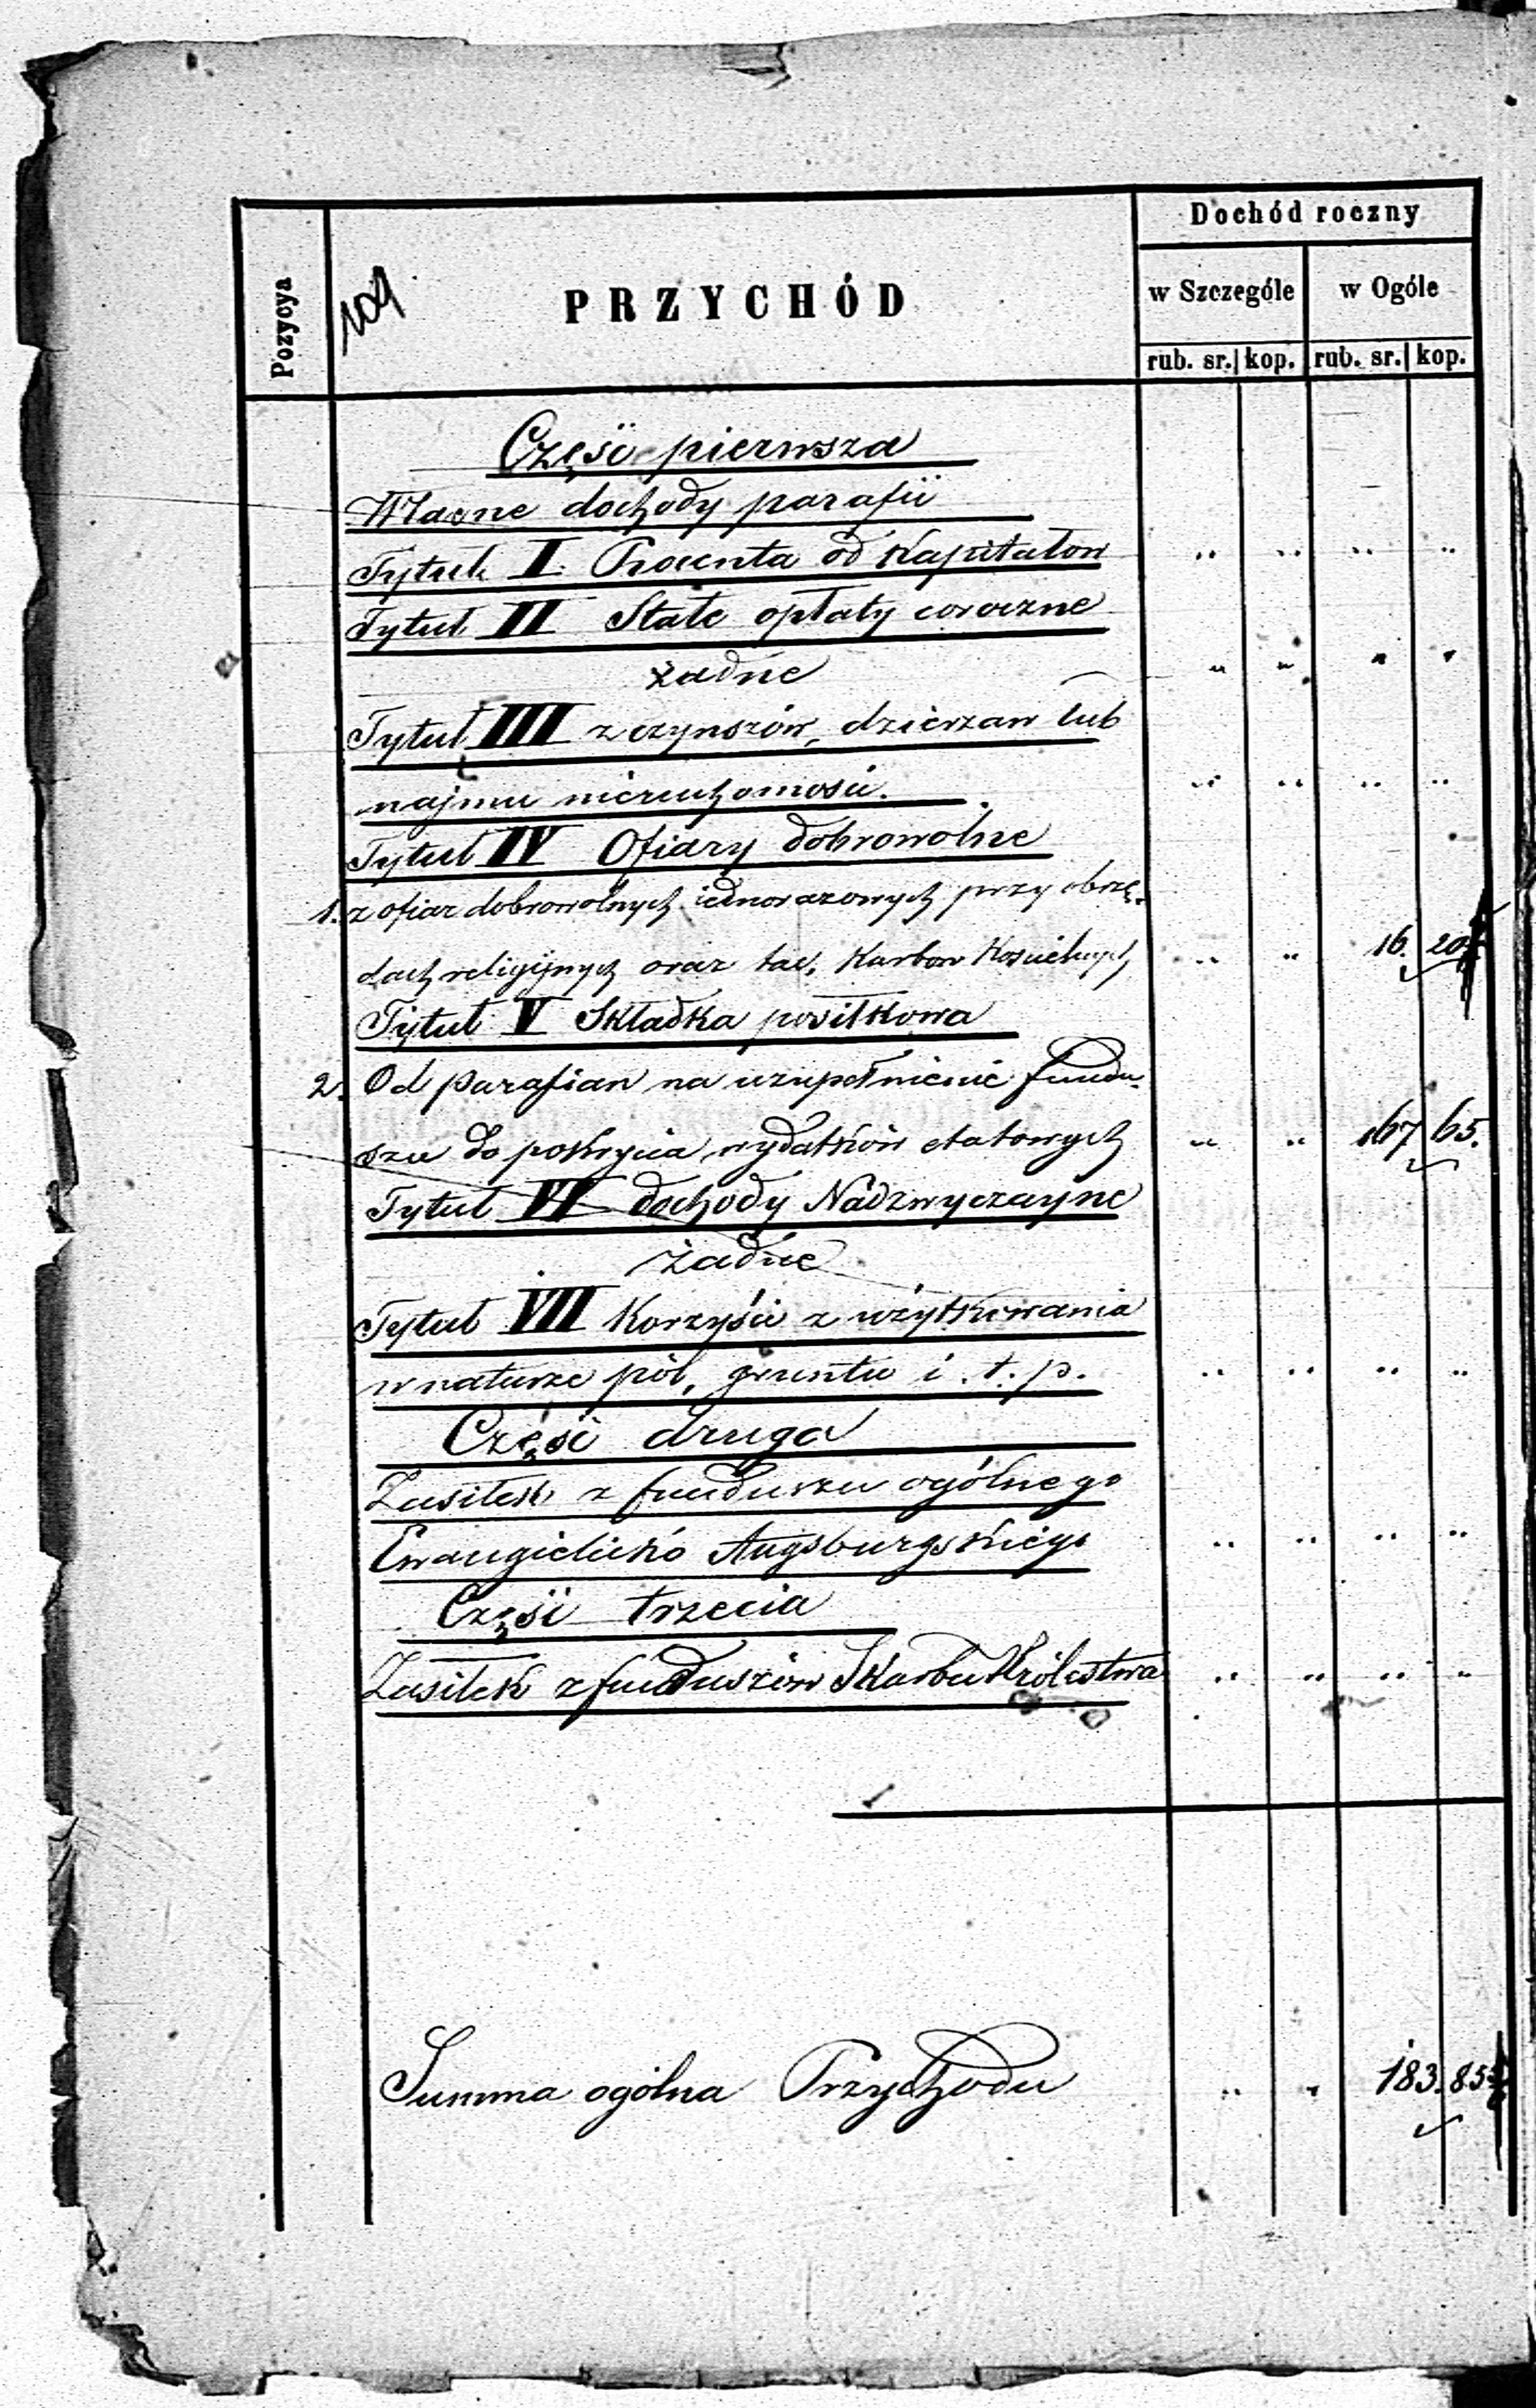 Dochód roczny
Pozycya
109
PRZYCHÓD
w Szczególe
w Ogóle
rub. sr. kop. rub. sr. kop.
Części pierwsza
Własne dochody parafii
Tytuł I. Procenta od Kapitałow
Tytuł II Stałe opłaty coroczne
żadne
Tytuł III z czynszów, dzierzaw lub
najmu nieruchomości.
Tytuł IV Ofiary dobrowolne
1. z ofiar dobrowolnych iednorazowych przy obrzę-
dach religijnych oraz tac, Karbon Kościelnych 16. 20
Tytuł V Składka posiłkowa
2. Od Parafian na uzupełnienie fundu-
szu do pokrycia wydatków etatowych 167 65.
Tytuł VI dochody Nadzwyczayne
żadne
Tytuł VII Korzyści z użytkowania
w naturze pól, gruntu i. t. p.
Części druga
Zasiłek z funduszu ogólnego
Ewangielicko Augsburgskiego
Części trzecia
Zasiłek z funduszów Skarbu Królestwa
Summa ogólna Przychodu 183. 85